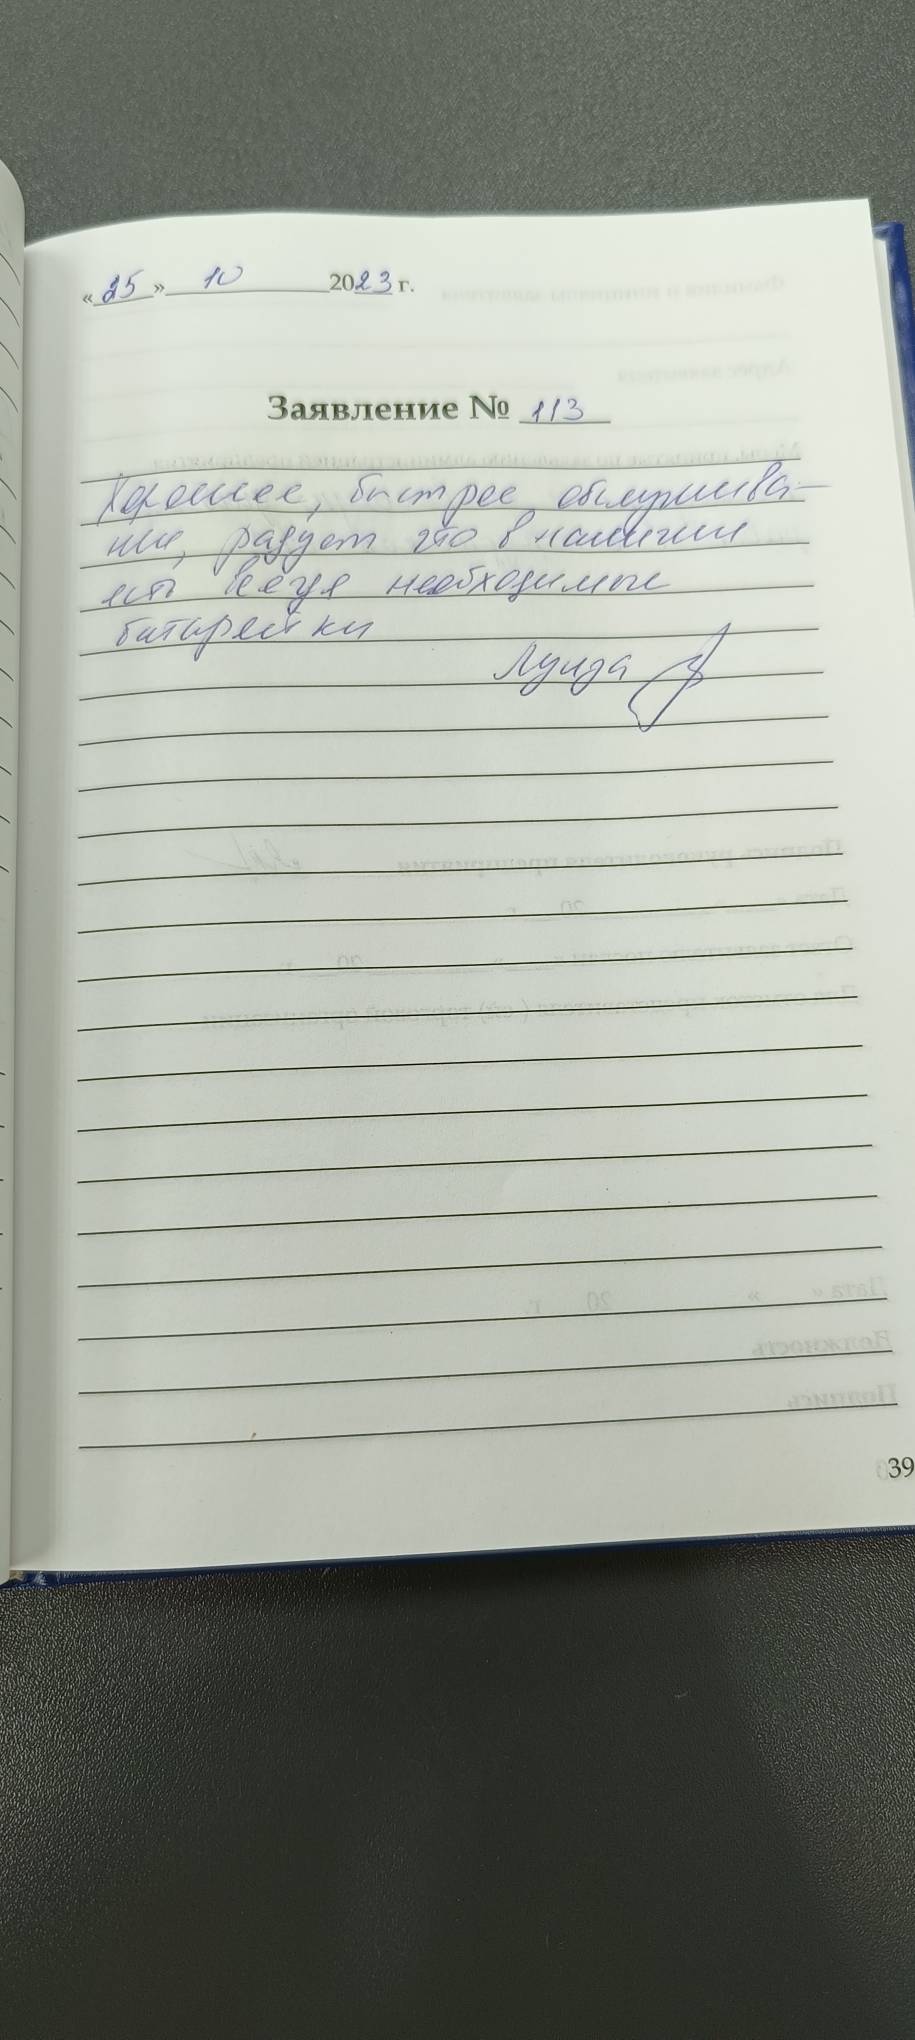 «25» 10 2023 г.
Заявление № 113
Хорошее, быстрое обслужива-
ние, радует что в наличии
есть всегда необходимые
батарейки
39